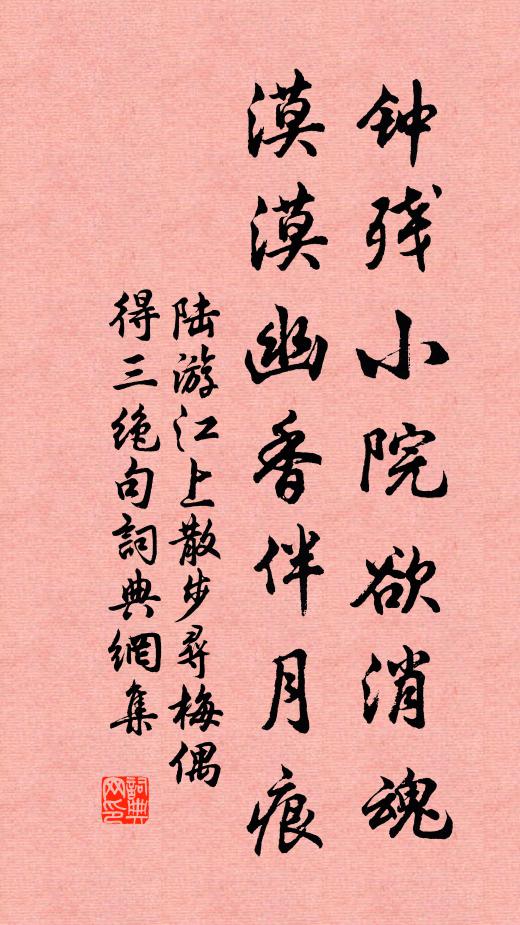 钟残小院欲消魂
漠漠幽香伴月痕
陆游江上散步寻梅偶
得三绝句詞典網集
詞典
网印